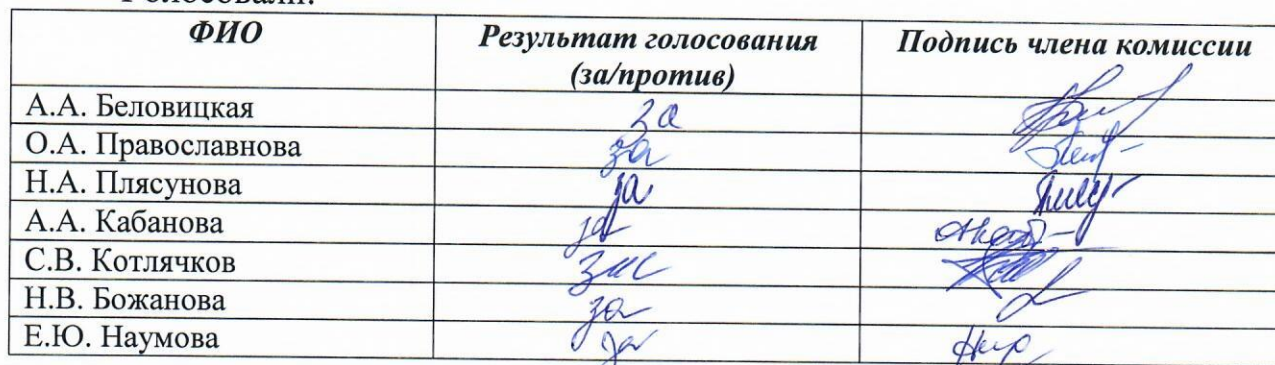 Голосовали:
ФИО Результат голосования Подпись члена комиссии
(за/против)
А.А. Беловицкая за
О.А. Православнова за
Н.А. Плясунова за
А.А. Кабанова за
С.В. Котлячков за
Н.В. Божанова за
Е.Ю. Наумова за